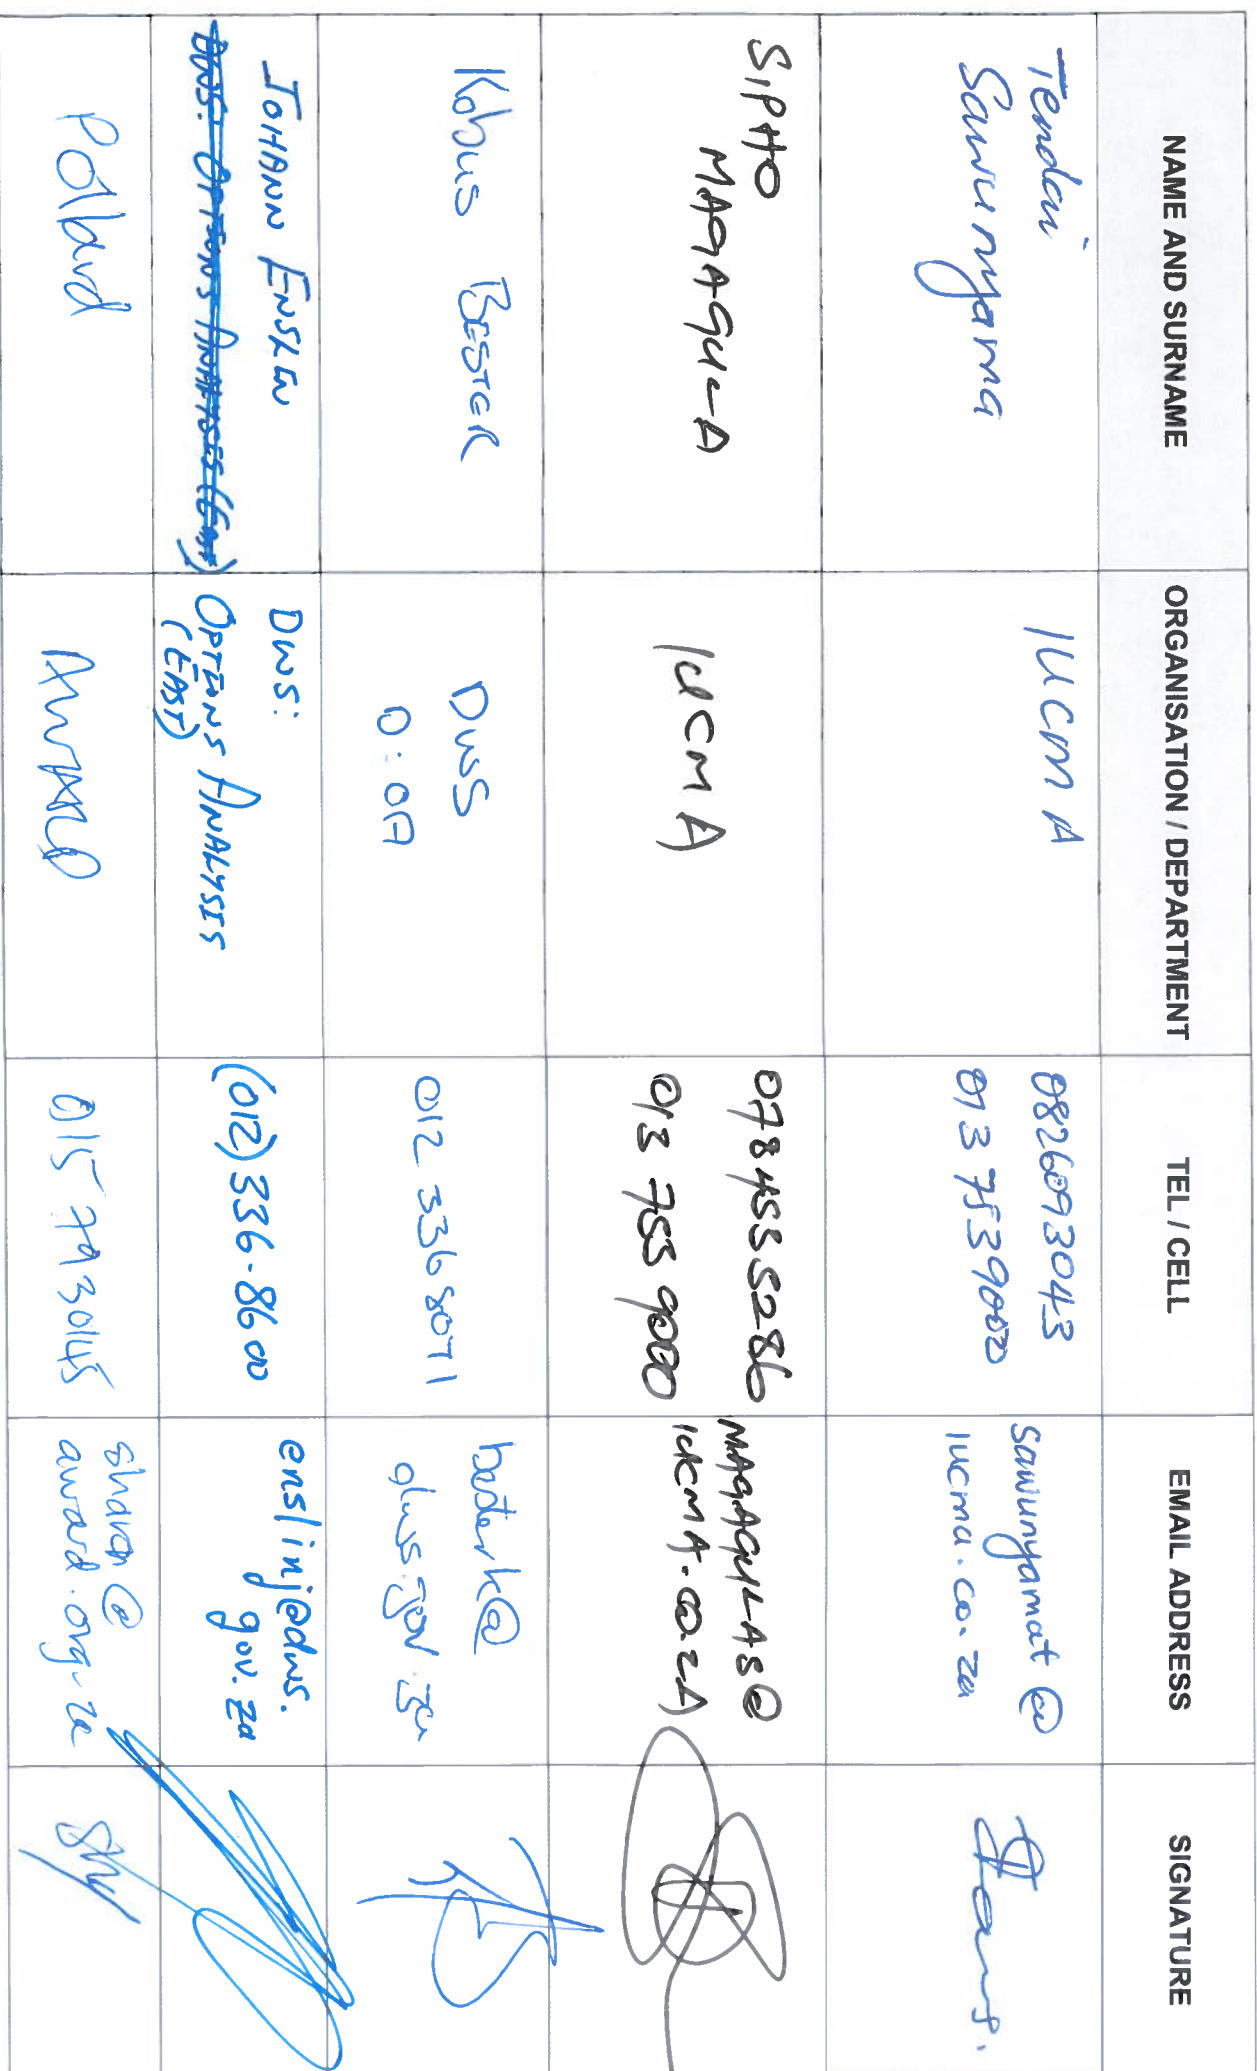 NAME AND SURNAME
ORGANISATION / DEPARTMENT
TEL / CELL
EMAIL ADDRESS
SIGNATURE
Tendai
Sawunyama
IUCMA
0826093043
013 7539000
sawunyamat@
iucma.co.za
SIPHO
MAGAGULA
IUCMA
0784535286
013 753 9000
MAGAGULAS@
IUCMA.CO.ZA
Kobus BESTER
DWS
O:OA
012 336 8071
besterk@
dws.gov.za
JOHANN ENSLIN
DWS: OPTIONS ANALYSES (EAST)
DWS:
OPTIONS ANALYSIS
(EAST)
(012) 336-8600
enslinj@dws.
gov.za
Pollard
AWARD
015 7930145
sharon@
award.org.za